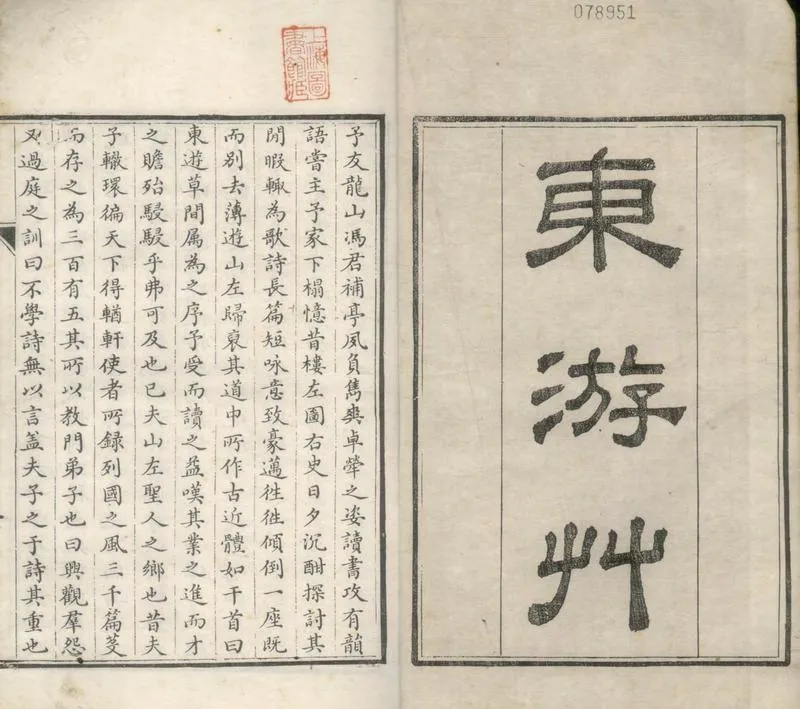 078951
東
游
艸
上海圖
書館藏
予友龍山馮君補亭夙負雋爽卓犖之姿讀書攻有韻
語嘗主予家下榻憶昔樓左圖右史日夕沉酣探討其
閒暇輒為歌詩長篇短咏意致豪邁徃徃傾倒一座既
而別去薄遊山左歸裒其道中所作古近體如干首曰
東遊草間属為之序予受而讀之益嘆其業之進而才
之贍殆駸駸乎弗可及也已夫山左聖人之鄉也昔夫
子轍環徧天下得輶軒使者所錄列國之風三千篇芟
而存之為三百有五其所以教門弟子也曰興觀羣怨
又過庭之訓曰不學詩無以言盖夫子之于詩其重也